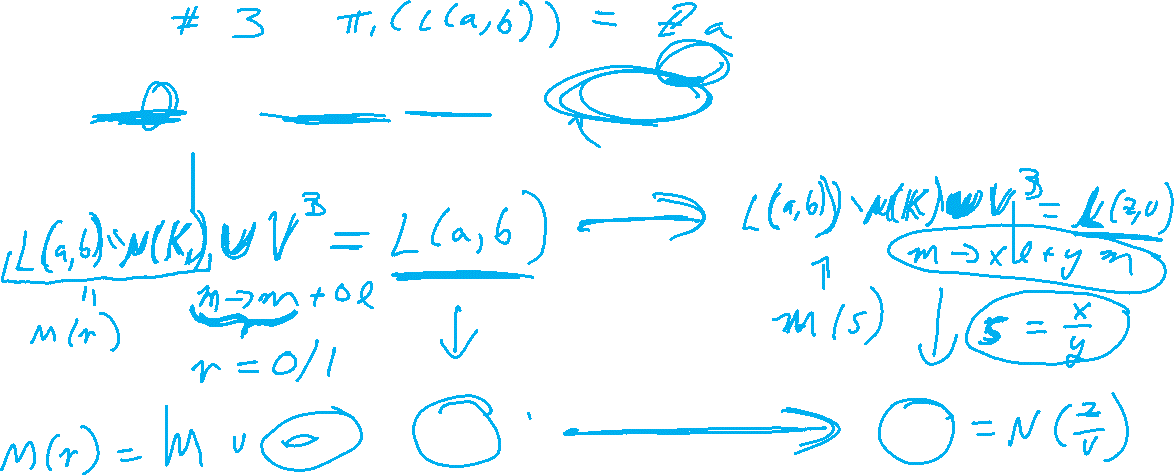 # 3 π₁(L(a,b)) = ℤa
L(a,b)∖N(K) ∪ V³ = L(a,b) → L(a,b)∖N(K) ∪ V³ = L(z,v)
m → m + 0l m → xl + y m
M(r) M(s)
r = 0/1 s = x/y
M(r) = M ∪ → = N(z/v)